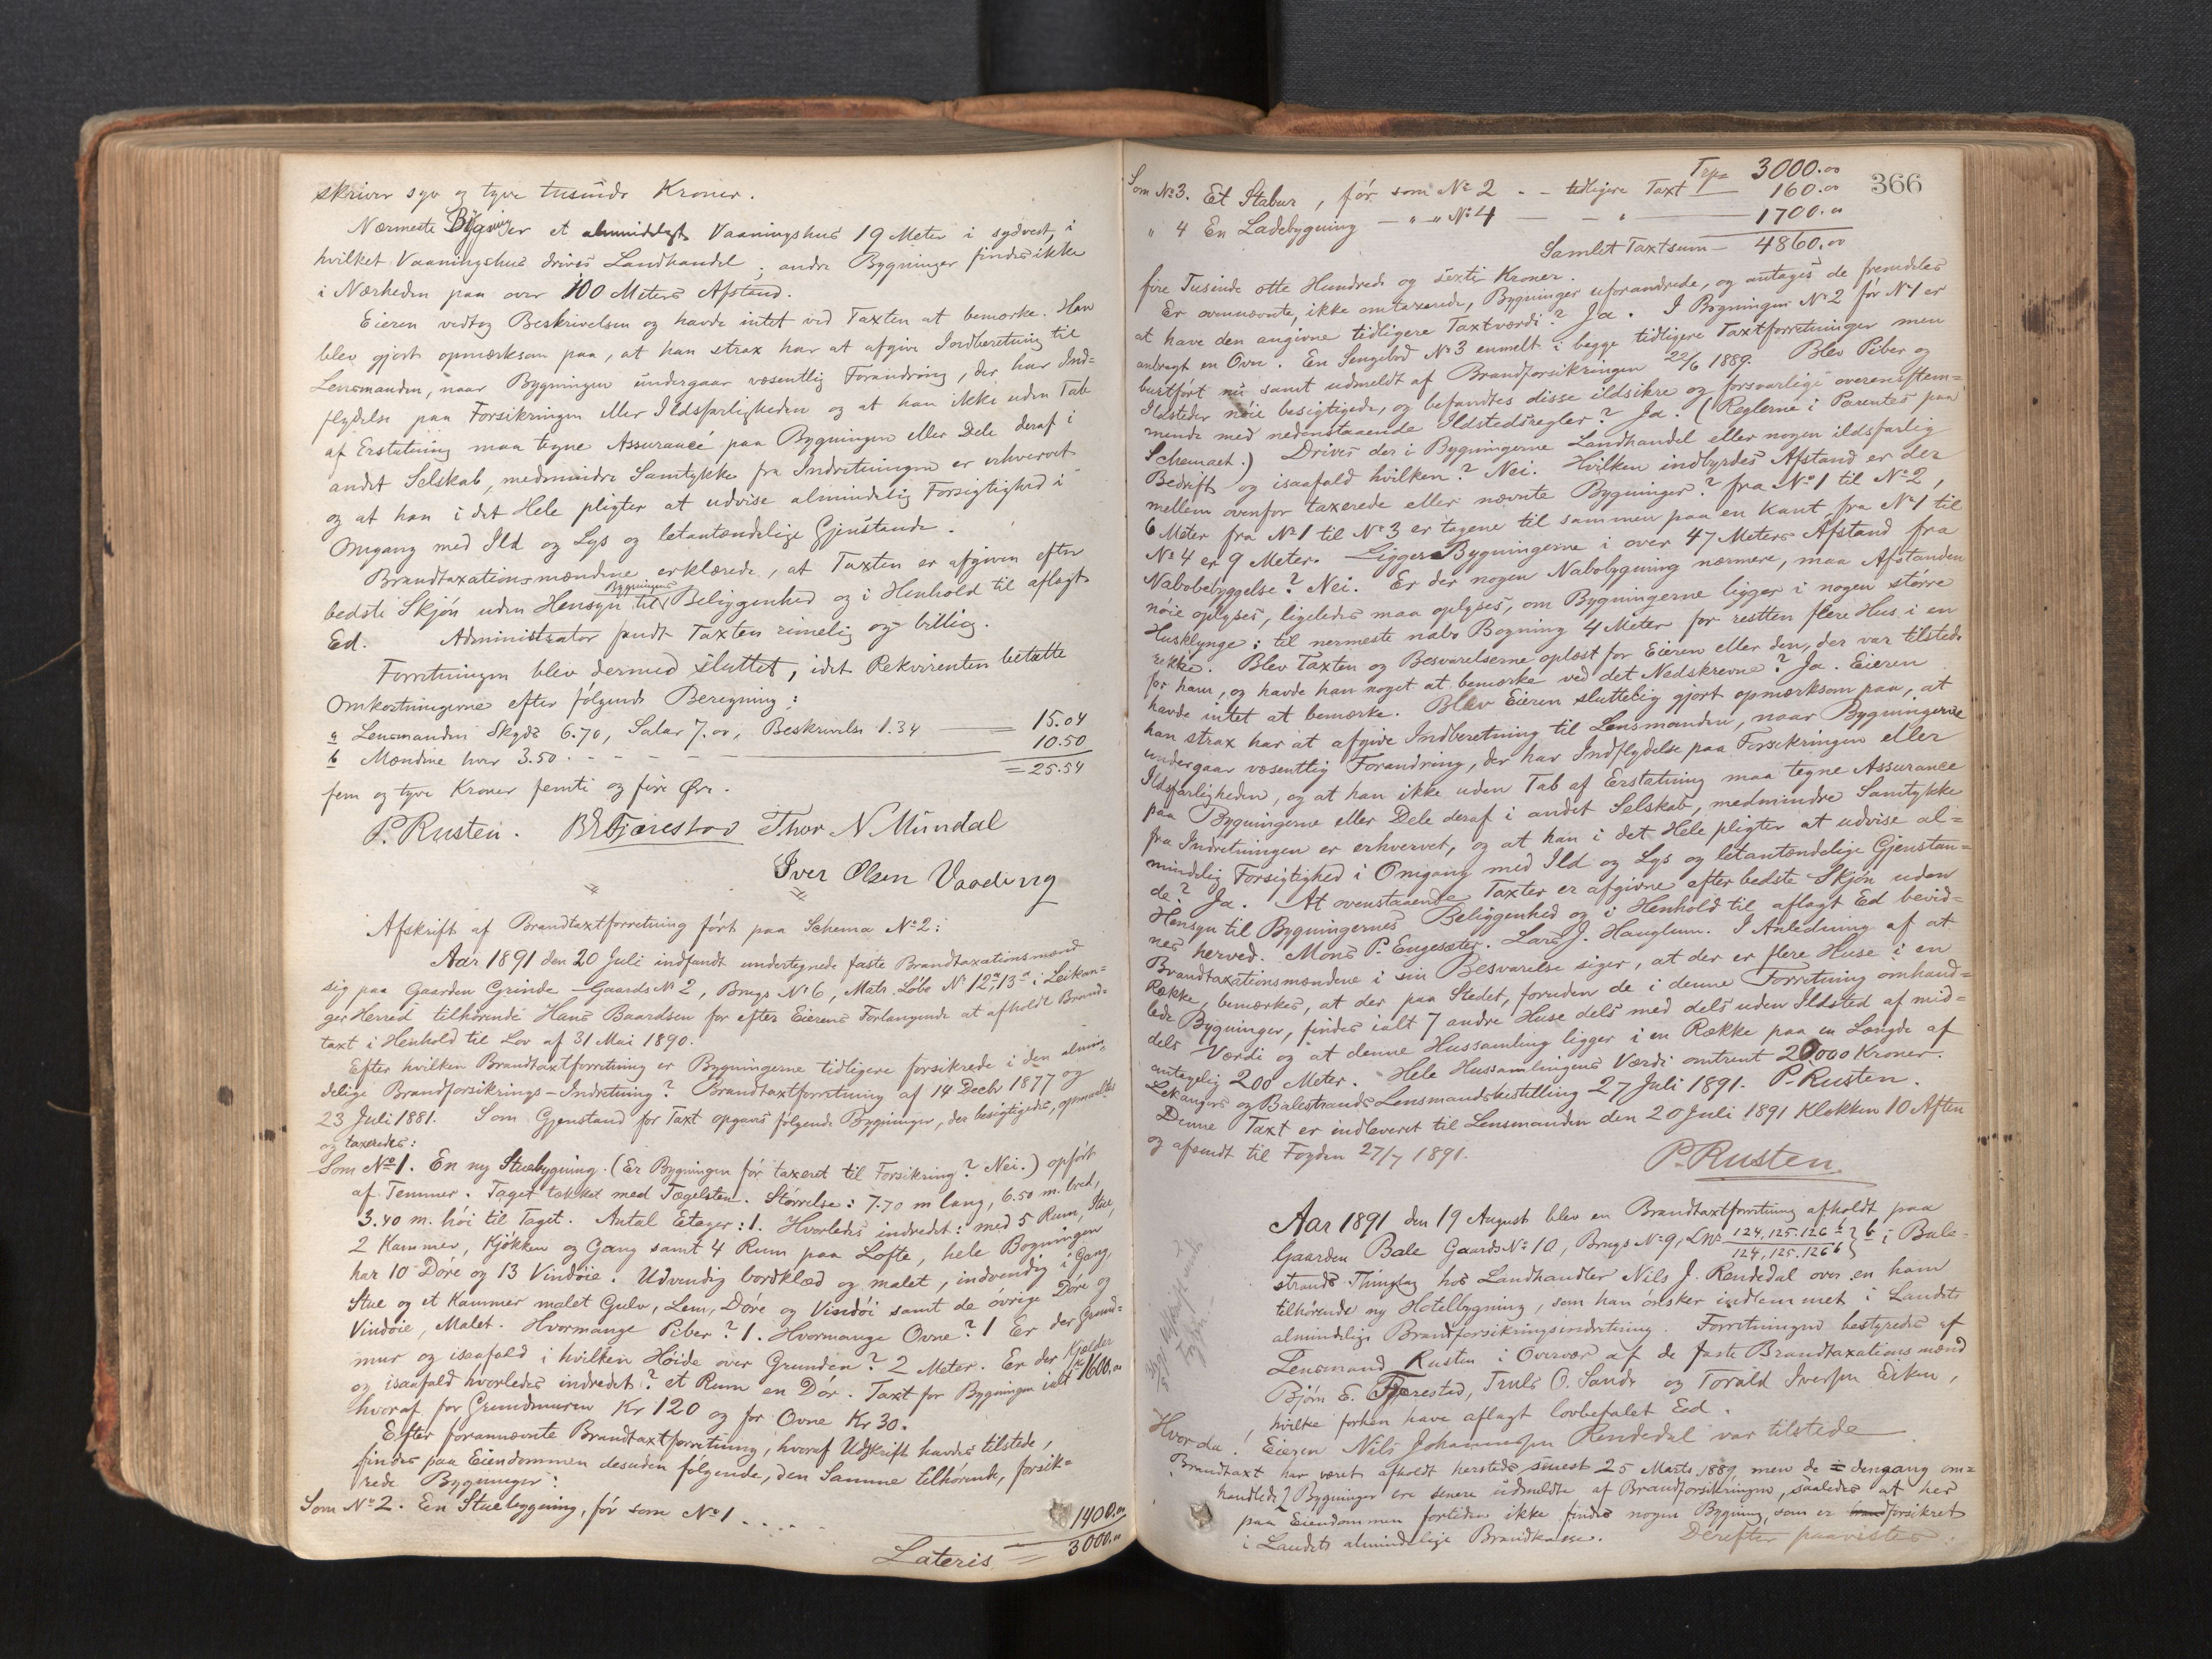 skriver syv og tyve tusinde Kroner.
Nærmeste Bygning er et almindeligt Vaaningshus 19 Meter i sydvest, i
hvilket Vaaningshus drives Landhandel; andre Bygninger findes ikke
i Nærheden paa over 100 Meters Afstand.
Eieren vedtog Beskrivelsen og havde intet ved Taxten at bemærke. Han
blev gjort opmærksom paa, at han strax har at afgive Indberetning til
Lensmanden, naar Bygningen undergaar væsentlig Forandring, der har Ind=
flydelse paa Forsikringen eller Ildsfarligheden og at han ikke uden Tab
af Erstatning maa tegne Assurance paa Bygningen eller Dele deraf i
andet Selskab, medmindre Samtykke fra Indretningen er erhvervet
og at han i det Hele pligter at udvise almindelig Forsigtighed i
Omgang med Ild og Lys og letantændelige Gjenstande.
Brandtaxationsmændene erklærede, at Taxten er afgiven efter
bedste Skjøn uden Hensyn til Bygningens Beliggenhed og i Henhold til aflagt
Ed. Administrator fandt Taxten rimelig og billig.
Forretningen blev dermed sluttet, idet Rekvirenten betalte
Omkostningerne efter følgende Beregning:
a Lensmanden Skyds 6.70, Salar 7.00, Beskrivelse 1.34 = 15.04
b Mændene hver 3.50 - - - - 10.50
= 25.54
fem og tyve Kroner femti og fire Øre.
P. Rusten. B E Fjærestad Thor N Mundal
Iver Olsen Vaadeng
Afskrift af Brandtaxtforretning ført paa Schema No 2:
Aar 1891 den 20 Juli indfandt undertegnede faste Brandtaxationsmænd
sig paa Gaarden Grinde - Gaards No 2, Brugs No 6, Matr. Løbe No 12a, 13a i Leikan=
ger Herred tilhørende Hans Baardsen for efter Eierens Forlangende at afholde Brand=
taxt i Henhold til Lov af 31 Mai 1890.
Efter hvilken Brandtaxtforretning er Bygningerne tidligere forsikrede i den almin=
delige Brandforsikrings-Indretning? Brandtaxtforretning af 14 Decbr 1877 og
23 Juli 1881. Som Gjenstand for Taxt opgaves følgende Bygninger, der besigtigedes, opmaaltes
og taxeredes:
Som No 1. En ny Stuebygning. (Er Bygningen før taxeret til Forsikring? Nei.) opført
af Temmer. Taget tækket med Tægelsten. Størrelse: 7.70 m lang, 6.50 m. bred,
3.40 m. høi til Taget. Antal Etager: 1. Hvorledes indredet: med 5 Rum, Stue,
2 Kammer, Kjøkken og Gang samt 4 Rum paa Lofte, hele Bogningen
har 10 Døre og 13 Vindøie. Udvendig bordklæd og malet, indvendig i Gang,
Stue og et Kammer malet Gulv, Lem, Døre og Vindøi samt de øvrige Døre og
Vindøie, Malet. Hvormange Piber? 1. Hvormange Ovne? 1 Er der Grund=
mur og isaafald i hvilken Høide over Grunden? 2 Meter. Er der Kjelder
og isaafald hvorledes indredet? et Rum en Dør. Taxt for Bygningen ialt Kr 1600.00
hvoraf for Grundmuren Kr 120 og for Ovne Kr 30.
Efter forannævnte Brandtaxtforretning, hvoraf Udskrift havdes tilstede,
findes paa Eiendommen desuden følgende, den Samme tilhørende, forsik=
rede Bygninger:
Som No 2. En Stuebygning, før som No 1 .... 1400.00
Lateris = 3000.00
366
Trp= 3000.00
Som No 3. Et Stabur, før som No 2 - - tidligere Taxt — 160.00
" 4 En Ladebygning — " — " No 4 — - " — 1700.00
Samlet Taxtsum — 4860.00
fire Tusinde otte Hundrede og sexti Kroner.
Er ovennævnte, ikke omtaxerede, Bygninger uforandrede, og antages de fremdeles
at have den angivne tidligere Taxtværdi? Ja. I Bygningen No 2 før No 1 er
anbragt en Ovn. En Sengebod No 3 enmelt i begge tidligere Taxtforretninger men
burtført nu samt udmeldt af Brandforsikringen 22/6 1889. Blev Piber og
Ildsteder nøie besigtigede, og befandtes disse ildsikre og forsvarlige overensstem=
mende med nedenstaaende Ildstedsregler? Ja. (Reglerne i Parentes paa
Schemaet.) Drives der i Bygningerne Landhandel eller nogen ildsfarlig
Bedrift og isaafald hvilken? Nei. Hvilken indbyrdes Afstand er der
mellem ovenfor taxerede eller nævnte Bygninger? fra No 1 til No 2,
6 Meter fra No 1 til No 3 er tagene til sammen paa en Kant, fra No 1 til
No 4 er 9 Meter. Ligger Bygningerne i over 47 Meters Afstand fra
Nabobebyggelse? Nei. Er der nogen Nabobygning nærmere, maa Afstanden
nøie oplyses, ligeledes maa oplyses, om Bygningerne ligger i nogen større
Husklynge: til nermeste nabo Bogning 4 Meter for restten flere Hus i en
rekke. Blev Taxten og Besvarelserne oplæst for Eieren eller den, der var tilstede
for ham, og havde han noget at bemærke ved det Nedskrevne? Ja. Eieren
havde intet at bemærke. Blev Eieren sluttelig gjort opmærksom paa, at
han strax har at afgive Indberetning til Lensmanden, naar Bygningerne
undergaar væsentlig Forandring, der har Indflydelse paa Forsikringen eller
Ildsfarligheden, og at han ikke uden Tab af Erstatning maa tegne Assurance
paa Bygningerne eller Dele deraf i andet Selskab, medmindre Samtykke
fra Indretningen er erhvervet, og at han i det Hele pligter at udvise al=
mindelig Forsigtighed i Omgang med Ild og Lys og letantændelige Gjenstan=
de? Ja. At ovenstaaende Taxter er afgivne efter bedste Skjøn uden
Hensyn til Bygningernes Beliggenhed og i Henhold til aflagt Ed bevid=
nes herved. Mons P. Engesæter. Lars J. Hauglum. I Anledning af at
Brandtaxationsmændene i sin Besvarelse siger, at der er flere Huse i en
Række, bemærkes, at der paa Stedet, foruden de i denne Forretning omhand=
lede Bygninger, findes ialt 7 andre Huse dels med dels uden Ildsted af mid=
dels Værdi og at denne Hussamling ligger i en Række paa en Længde af
antagelig 200 Meter. Hele Hussamlingens Værdi omtrent 20000 Kroner.
Lekangers og Balestrands Lensmandsbestilling 27 Juli 1891. P. Rusten.
Denne Taxt er indleveret til Lensmanden den 20 Juli 1891 Klokken 10 Aften
og afsendt til Fogden 27/7 1891.
P. Rusten
Aar 1891 den 19 August blev en Brandtaxtforretning afholdt paa
Gaarden Bale Gaards No 10, Brugs No 9, LNo 124, 125. 126 b / 124, 125. 126 b } b i Bale=
strands Thinglag hos Landhandler Nils J. Rendedal over en ham
tilhørende ny Hotelbygning, som han ønsker indlemmet i Landets
almindelige Brandforsikringsindretning. Forretningen bestyredes af
Lensmand Rusten i Overvær af de faste Brandtaxationsmænd
Bjørn E. Fjærestad, Truls O. Sande og Torald Iversen Eiken,
hvilke forhen have aflagt lovbefalet Ed.
Hvorda! Eieren Nils Johannesen Rendedal var tilstede
Brandtaxt har været afholdt herstedes sinest 25 Marts 1889, men de dengang om=
handlede 2 Bygninger ere senere udmeldte af Brandforsikringen, saaledes at her
paa Eiendommen fortiden ikke findes nogen Bygning, som er brandforsikret
i Landets almindelige Brandkasse. Derefter paavistes